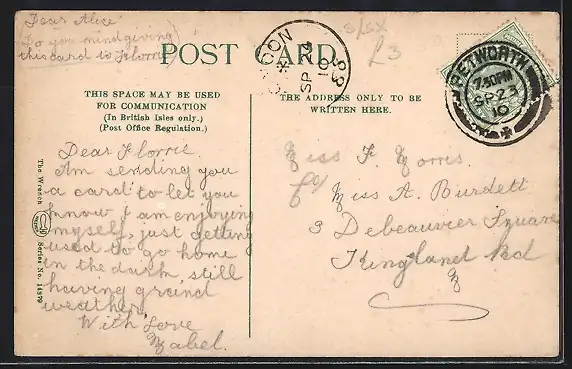 Dear Alice
Do you mind giving
this card to Florrie
POST CARD.
S/SX
£3
LONDON
SP 24
10
PETWORTH
7.30PM
SP 23
10
THIS SPACE MAY BE USED
FOR COMMUNICATION
(In British Isles only.)
(Post Office Regulation.)
THE ADDRESS ONLY TO BE
WRITTEN HERE.
Dear Florrie
Am sending you
a card to let you
know I am enjoying
myself, just getting
used to go home
in the dark, still
having grand
weather
With Love
Mabel.
The Wrench
Series No.
Miss F Morris
c/o
Miss A. Burdett
3 Debeauvier Square
Kingland Rd
N